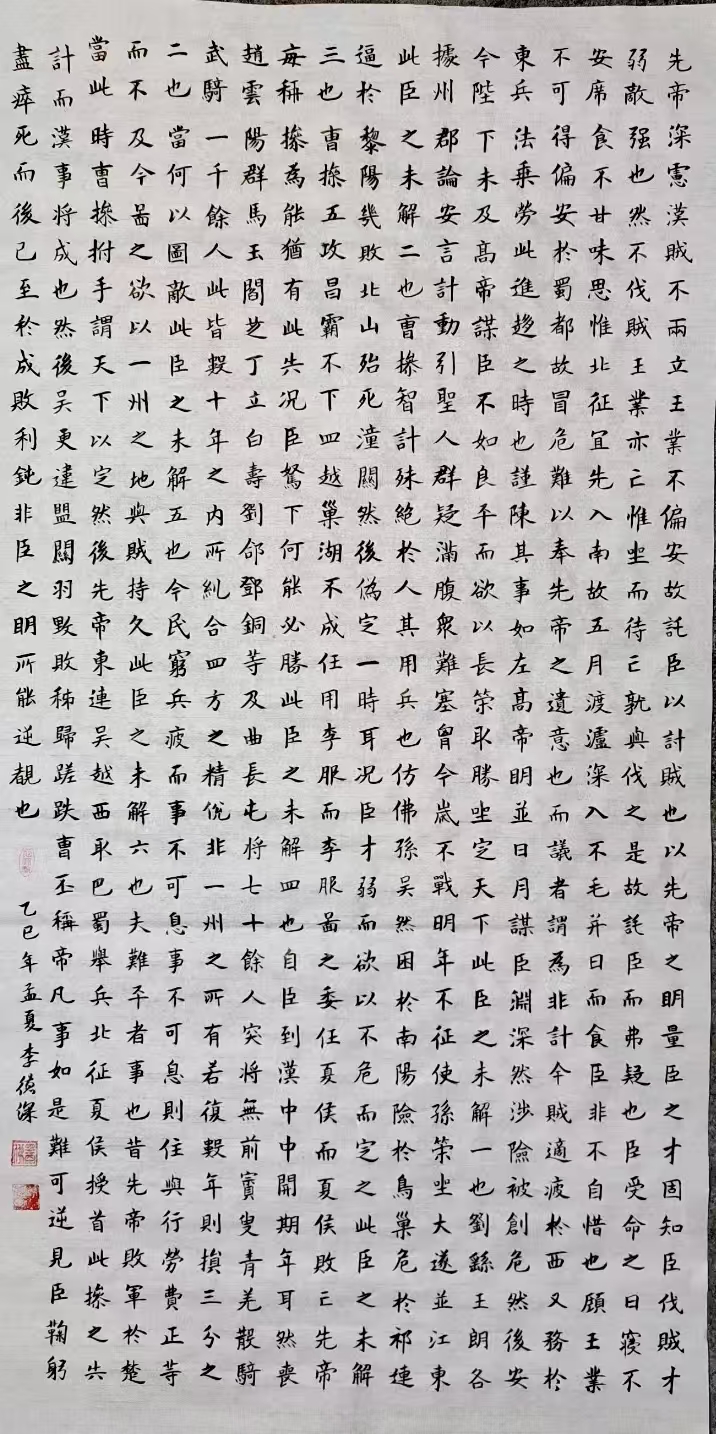 先帝深憲漢賊不兩立王業不偏安故託臣以計賊也以先帝之明量臣之才固知臣伐賊才
弱敵强也然不伐賊王業亦亡惟坐而待亡孰與伐之是故託臣而弗疑也臣受命之日寢不
安席食不甘味思惟北征宜先入南故五月渡瀘深入不毛并日而食臣非不自惜也顧王業
不可得偏安於蜀都故冒危難以奉先帝之遺意也而議者謂為非計今賊適疲於西又務於
東兵法乗勞此進趨之時也謹陳其事如左高帝明並日月謀臣淵深然涉險被創危然後安
今陛下未及高帝謀臣不如良平而欲以長策取勝坐定天下此臣之未解一也劉繇王朗各
據州郡論安言計動引聖人群疑滿腹衆難塞胷今歲不戰明年不征使孫策坐大遂並江東
此臣之未解二也曹操智計殊絶於人其用兵也仿佛孫吳然困於南陽險於烏巢危於祁連
逼於黎陽幾敗北山殆死潼關然後偽定一時耳况臣才弱而欲以不危而定之此臣之未解
三也曹操五攻昌霸不下四越巢湖不成任用李服而李服啚之委任夏侯而夏侯敗亡先帝
每稱操為能猶有此失况臣駑下何能必勝此臣之未解四也自臣到漢中中間期年耳然喪
趙雲陽群馬玉閻芝丁立白壽劉郃鄧銅等及曲長屯將七十餘人突將無前賨叟青羌散騎
武騎一千餘人此皆數十年之内所糾合四方之精銳非一州之所有若復數年則損三分之
二也當何以圖敵此臣之未解五也今民窮兵疲而事不可息事不可息則住與行勞費正等
而不及今啚之欲以一州之地與賊持久此臣之未解六也夫難平者事也昔先帝敗軍於楚
當此時曹操拊手謂天下以定然後先帝東連吳越西取巴蜀舉兵北征夏侯授首此操之失
計而漢事将成也然後吳更違盟關羽毀敗秭歸蹉跌曹丕稱帝凡事如是難可逆見臣鞠躬
盡瘁死而後已至於成敗利鈍非臣之明所能逆覩也
乙巳年孟夏李德